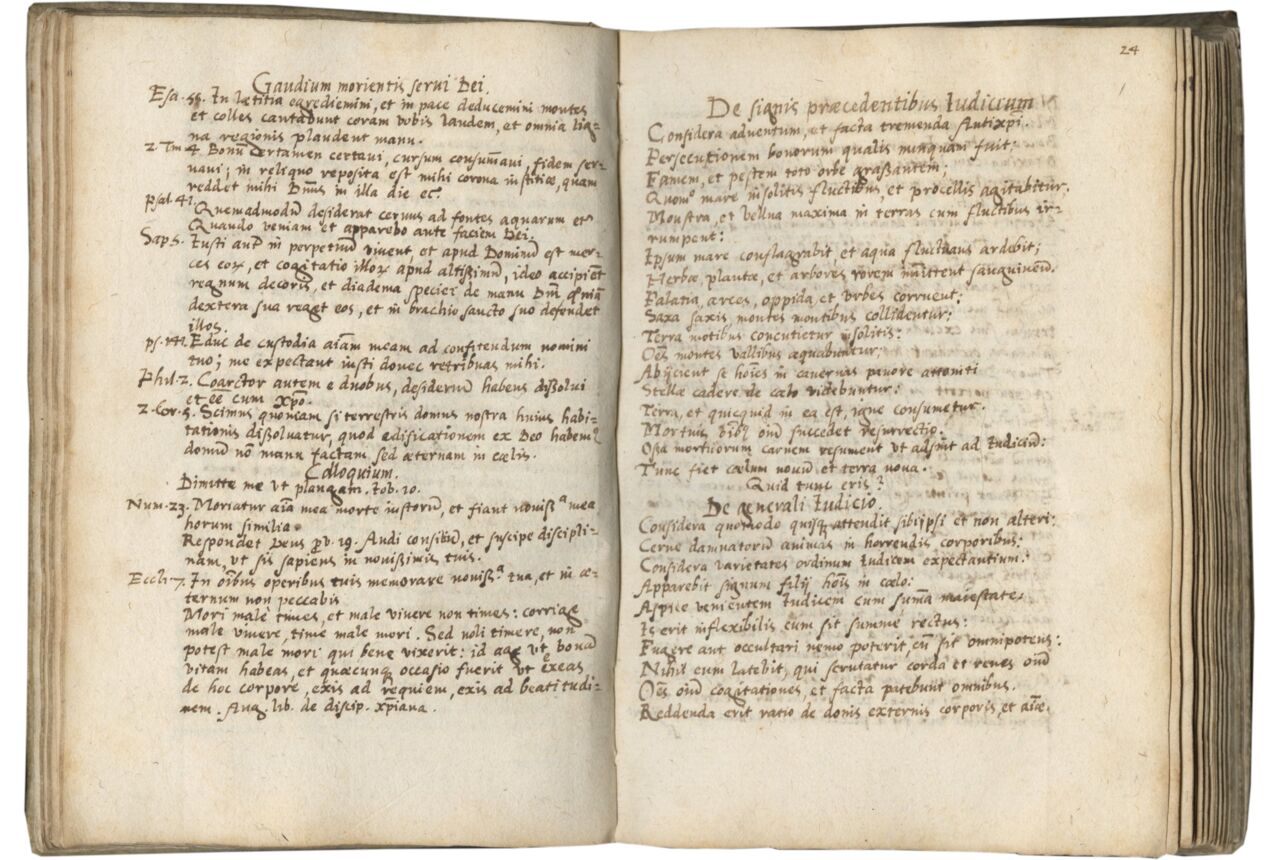 Gaudium morientis serui Dei.
Esa. 55. In lætitia egrediemini, et in pace deducemini montes
et colles cantabunt coram vobis laudem, et omnia lig=
na regionis plaudent manu.
2. Tm 4 Bonū certamen certaui, cursum consum̄aui, fidem ser=
uaui; in reliquo reposita est mihi corona iustitiæ, quam
reddet mihi Dn̄us in illa die ec.
psal 41
Quemadmodū desiderat ceruus ad fontes aquarum etc
Quando veniam et apparebo ante faciem Dei.
Sap. 5. Iusti aut in perpetuū viuent, et apud Dominū est mer=
ces eoꝝ, et cogitatio illoꝝ apud altißimū, ideo accipiēt
regnum decoris, et diadema speciei de manu Dn̄i qm̄iā
dextera sua reget eos, et in brachio sancto suo defendet
illos.
ps. 141. Educ de custodia aīam meam ad confitendum nomini
tuo; me expectant iusti donec retribuas mihi.
Phil. 2. Coarctor autem e duobus, desideriū habens dißolui
et ēē cum xp̄o.
2. Cor. 5. Scimus quoniam si terrestris domus nostra huius habi=
tationis dißoluatur, quod edificationem ex Deo habem9
domū nō manu factam sed æternam in cælis.
Colloquium.
Dimitte me vt plangam. Iob. 10.
Num. 23. Moriatur aīa mea morte iustorū, et fiant nouißa mea
horum similia.
Respondet Deus p̄v. 19. Audi consiliū, et suscipe discipli=
nam, vt sis sapiens in nouißimis tuis.
Eccli. 7. In oībus operibus tuis memorare nouißa tua, et in æ=
ternum non peccabis
Mori male times, et male viuere non times: corrige
male viuere, time male mori. Sed noli timere, non
potest male mori qui bene vixerit: id age vt bonā
vitam habeas, et quæcunqꝫ occasio fuerit vt exeas
de hoc corpore, exis ad requiem, exis ad beatitudi=
nem. Aug. lib. de discip. xp̄iana.
24
De signis præcedentibus Iudicium
Considera aduentum, et facta tremenda Antixp̄i.
Persecutionem bonorum qualis nunquam fuit;
Famem, et pestem toto orbe graßantem;
Quomo mare insolitis fluctibus, et procellis agitabitur.
Monstra, et bellua maxima in terras cum fluctibus ir=
rumpent:
Ipsum mare conflagrabit, et aqua fluctuans ardebit;
Herbæ, plantæ, et arbores rorem mittent sanguineū.
Palatia, arces, oppida, et vrbes corruent;
Saxa saxis, montes montibus collidentur;
Terra motibus concutietur insolitis:
Oēs montes vallibus æquabuntur;
Abijcient se hoīes in cauernas pauore attoniti
Stellæ cadere de cælo videbuntur:
Terra, et quicquid in ea est, igne consumetur.
Mortuis oībꝫ oīū succedet resurrectio.
Oßa mortuorum carnem resument vt adsint ad Iudiciū:
Tunc fiet cælum nouū et terra noua.
Quid tunc eris?
De generali Iudicio.
Considera quomodo quisqꝫ attendit sibijpsi et non alteri:
Cerne damnatorū animas in horrendis corporibus:
Considera varietates ordinum Iudicem expectantium:
Apparebit signum filij hoīs in cælo:
Aspice venientem Iudicem cum sum̄a maiestate.
Is erit inflexibilis cum sit summe rectus:
Fugere aut occultari nemo poterit, cū sit omnipotens:
Nihil eum latebit, qui scrutatur corda et renes oīū
Oēs oīū cogitationes, et facta patebunt omnibus.
Reddenda erit ratio de donis externis corporis, et aīæ.